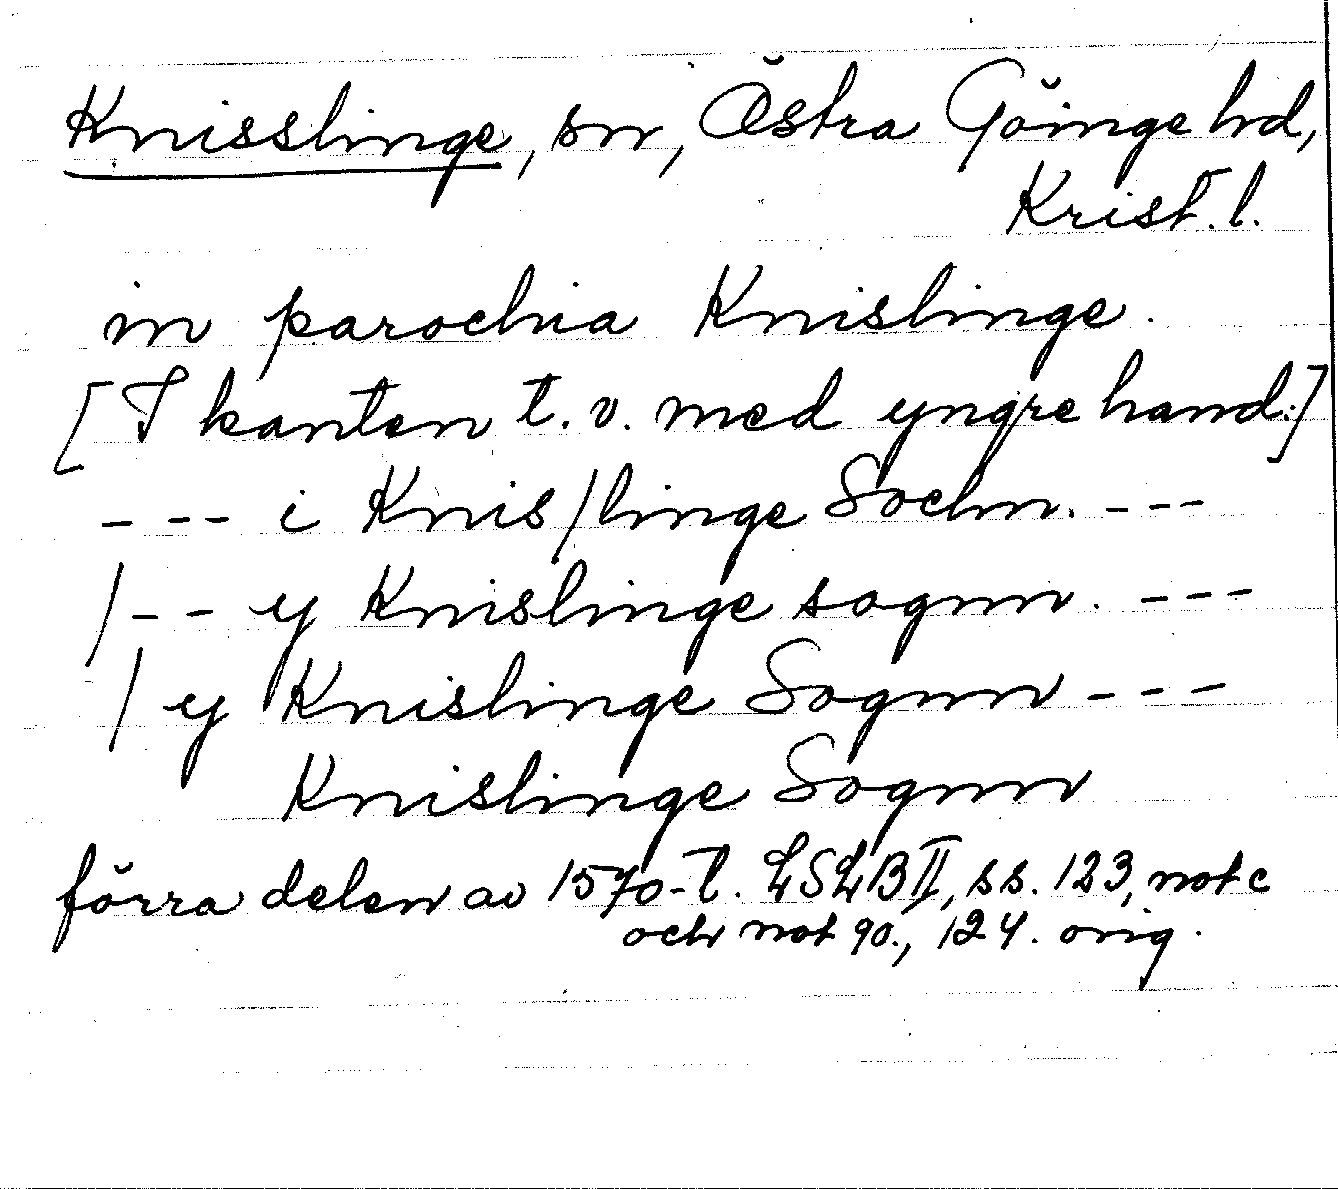 Knisslinge, sn, Östra Göinge hd,
Krist. l.
in parochia Knislinge.
[I kanten t. v. med yngre hand:]
--- i Knis/linge Sochn. ---
/-- y Knislinge sognn. ---
/ y Knislinge Sognn ---
Knislinge Sognn
förra delen av 1570-t. LSLB II, ss. 123, not c
och not 90., 124. orig.